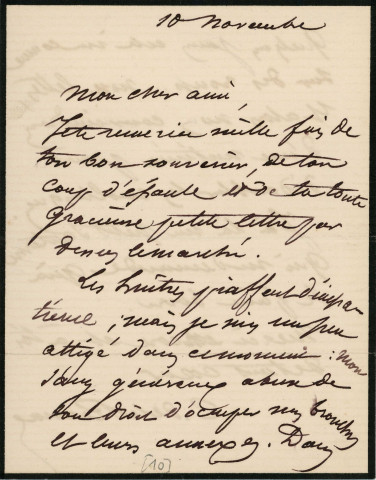 10 Novembre
Mon cher ami,
Je te remercie mille fois de
ton bon souvenir, de ton
coup d'épaule et de ta toute
gracieuse petite lettre par
dessus le marché.
Les huîtres piaffent d'impa-
tience ; mais je suis un peu
attigé dans ce moment : mon
sang généreux abuse de
son droit d'occuper mes bronches
et leurs annexes. Dans
[10]